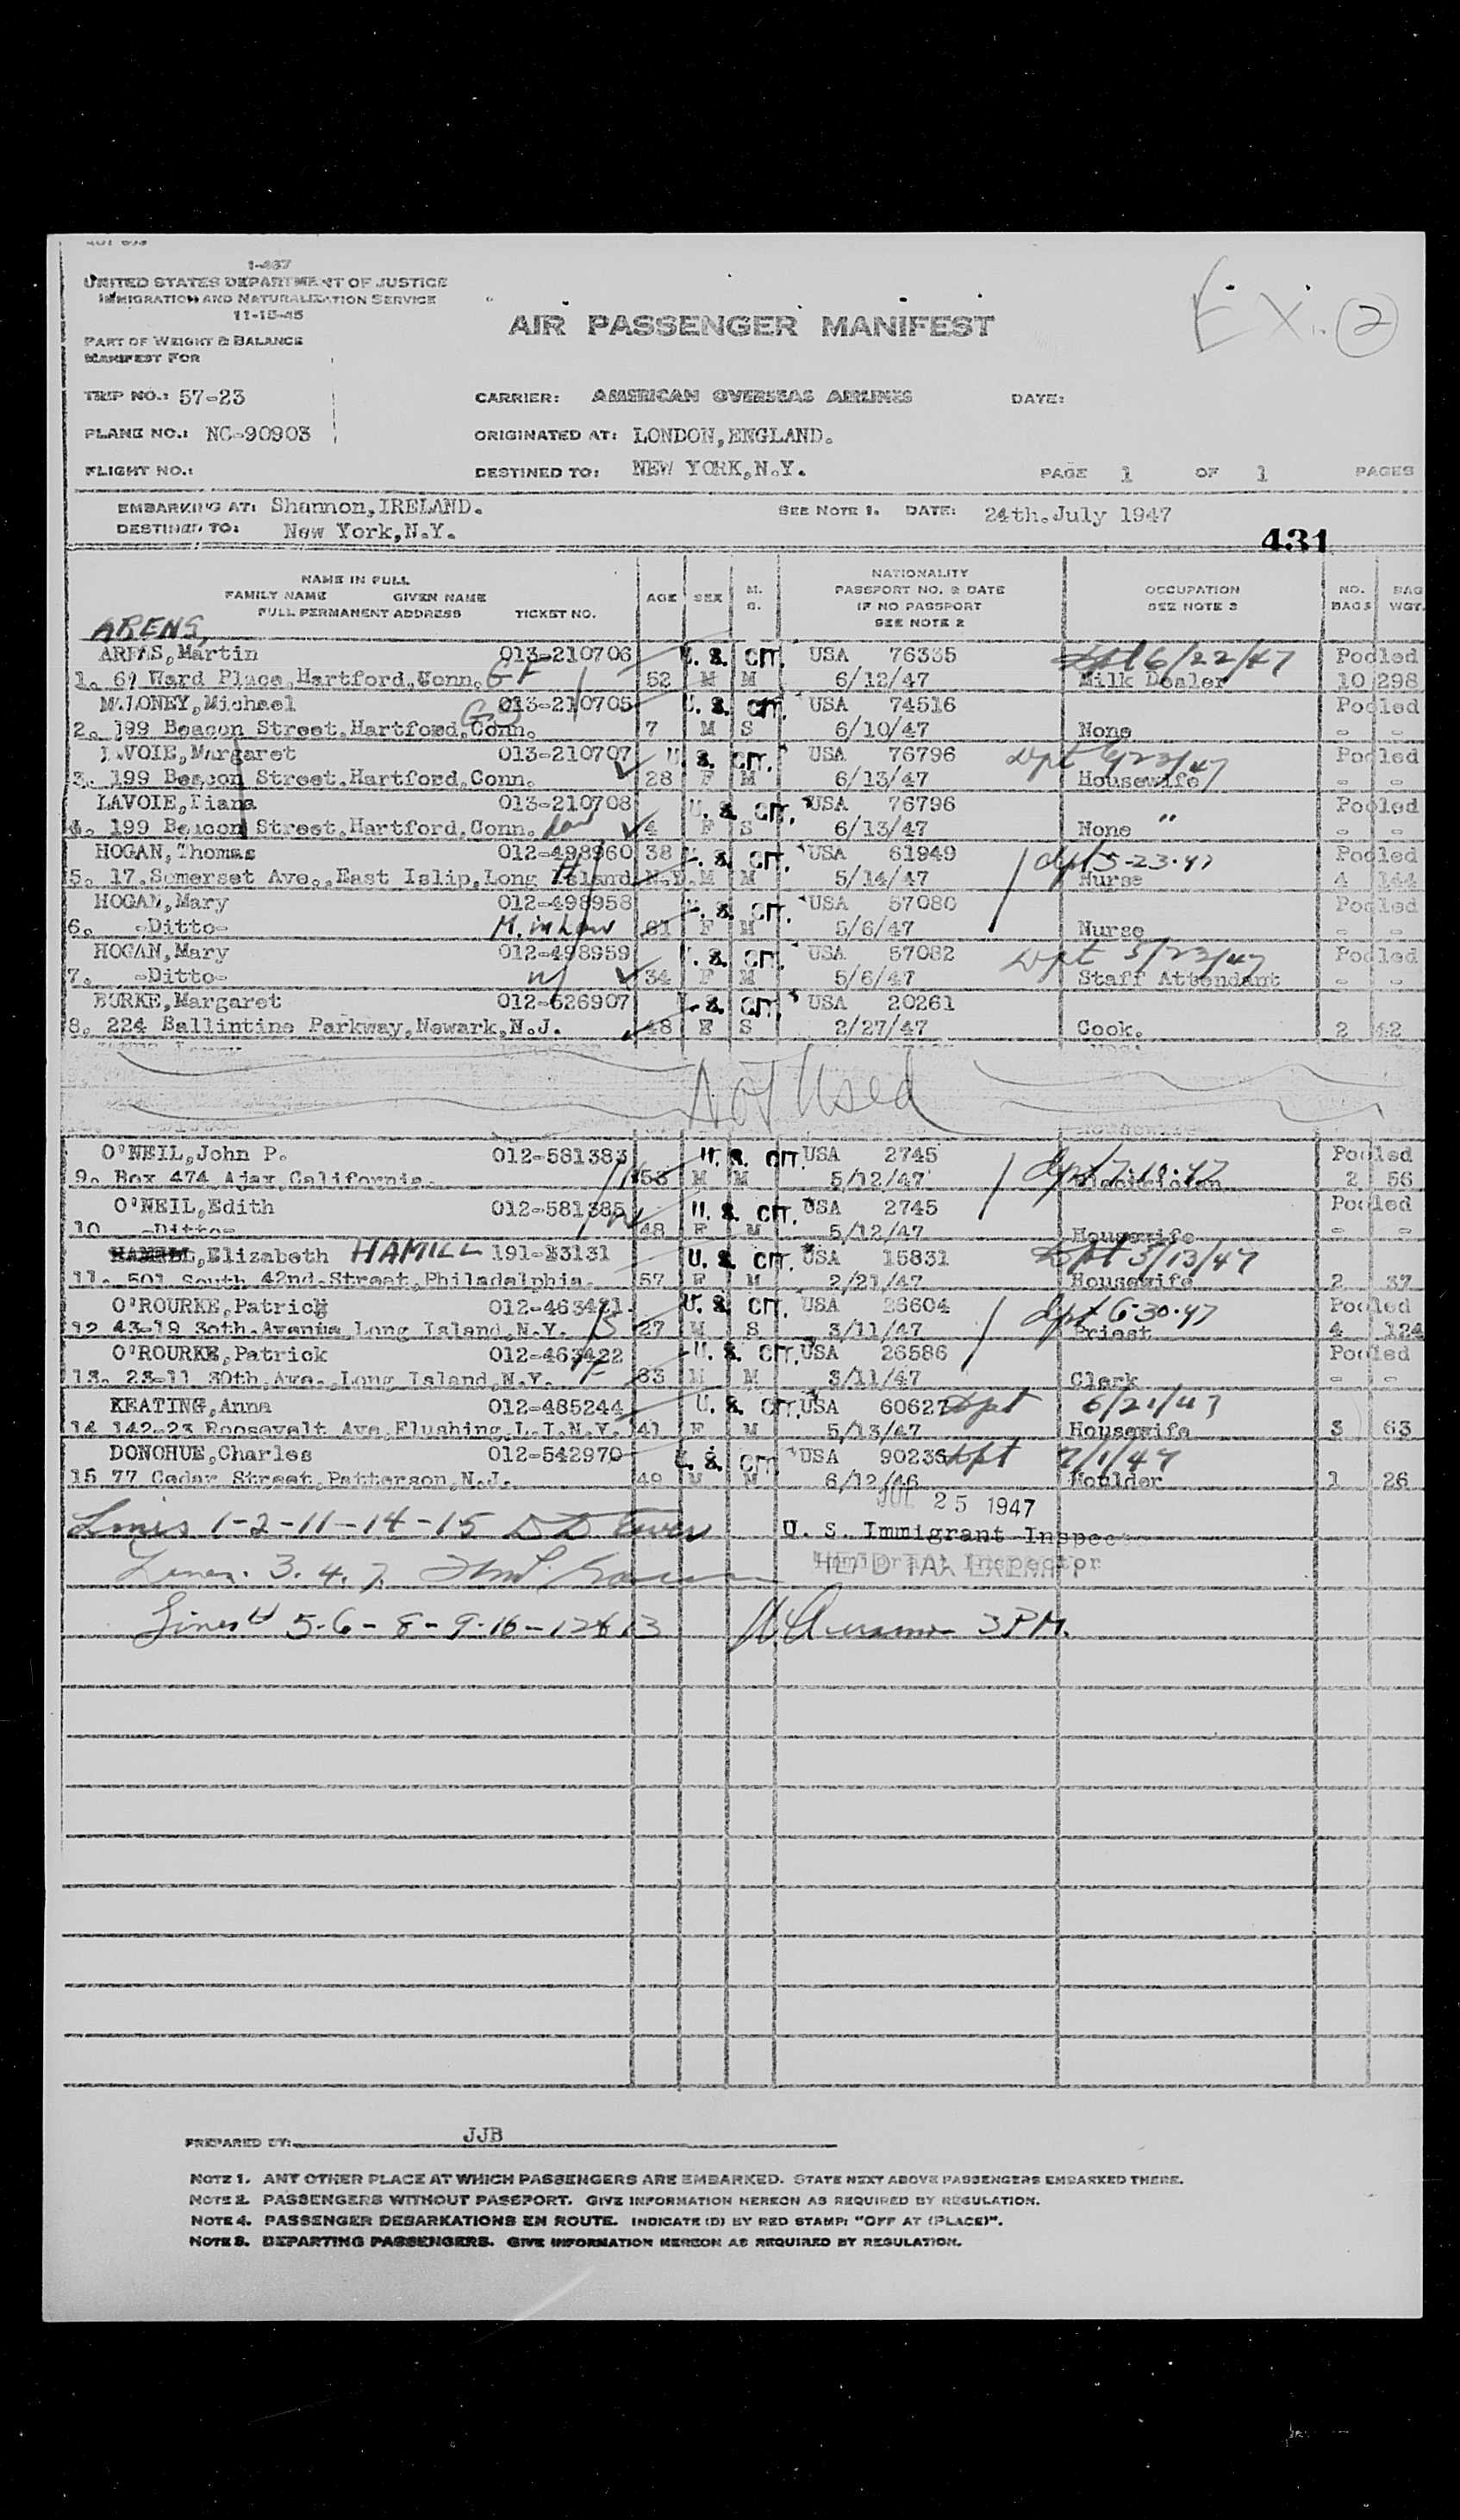 1-487
UNITED STATES DEPARTMENT OF JUSTICE
IMMIGRATION AND NATURALIZATION SERVICE
11-15-45
PART OF WEIGHT & BALANCE
MANIFEST FOR
AIR PASSENGER MANIFEST
EX. 2
TRIP NO.: 57-23 CARRIER: AMERICAN OVERSEAS AIRLINES DATE:
PLANE NO.: NC-90903 ORIGINATED AT: LONDON,ENGLAND.
FLIGHT NO.: DESTINED TO: NEW YORK,N.Y. PAGE 1 OF 1 PAGES
EMBARKING AT: Shannon,IRELAND. SEE NOTE 1. DATE: 24th.July 1947
DESTINED TO: New York,N.Y.
431
NAME IN FULL
FAMILY NAME GIVEN NAME
FULL PERMANENT ADDRESS TICKET NO. AGE SEX M. S. NATIONALITY PASSPORT NO. & DATE IF NO PASSPORT SEE NOTE 2 OCCUPATION SEE NOTE 3 NO. BAGS BAG WGT.
ARENS,
Martin 013-210706 U. S. CIT. USA 76335 6/22/47 Pooled
1. Ward Place,Hartford,Conn. GF 52 M M 6/12/47 Milk Dealer 10 298
MALONEY,Michael 013-210705 U. S. CIT. USA 74516 Pooled
2. 199 Beacon Street,Hartford,Conn. 7 M S 6/10/47 None - -
LAVOIE,Margaret 013-210707 U. S. CIT. USA 76796 Dpt 6/23/47 Pooled
3. 199 Beacon Street.Hartford,Conn. 28 F M 6/13/47 Housewife - -
LAVOIE,Diana 013-210708 U. S. CIT. USA 76796 Pooled
4. 199 Beacon Street.Hartford,Conn. 4 F S 6/13/47 None " - -
HOGAN,Thomas 012-498960 38 U. S. CIT. USA 61949 dpt 5-23-47 Pooled
5. 17.Somerset Ave.,East Islip,Long Island N.Y. M M 5/14/47 Nurse 4 144
HOGAN,Mary 012-498958 U. S. CIT. USA 57080 Pooled
6. -Ditto- M. in Law 61 F M 5/6/47 Nurse - -
HOGAN,Mary 012-498959 U. S. CIT. USA 57082 Dpt 5/23/47 Pooled
7. -Ditto- W 34 F M 5/6/47 Staff Attendant - -
BURKE,Margaret 012-626907 U. S. CIT. USA 20261
8. 224 Ballintine Parkway,Newark,N.J. 48 F S 2/27/47 Cook. 2 42
Not Used
O'NEIL,John P. 012-581383 U. S. CIT. USA 2745 dpt 7-10-47 Pooled
9. Box 474 Ajax,California. 53 M M 5/12/47 2 56
O'NEIL,Edith 012-581385 W U. S. CIT. USA 2745 Pooled
10 -Ditto- 48 F M 5/12/47 Housewife - -
Elizabeth HAMILL 191-E3131 U. S. CIT. USA 15831 Dpt 3/13/47
11. 501 South 42nd.Street,Philadelphia. 57 F M 2/21/47 Housewife 2 37
O'ROURKE,Patrick 012-463421 U. S. CIT. USA 26604 dpt 6-30-47 Pooled
12 43-19 30th.Avenue,Long Island,N.Y. S 27 M S 3/11/47 Priest 4 124
O'ROURKE,Patrick 012-463422 U. S. CIT. USA 26586 Pooled
13. 23-11 30th,Ave.,Long Island,N.Y. F 63 M M 3/11/47 Clerk - -
KEATING,Anna 012-485244 U. S. CIT. USA 60627 Dpt 6/21/47
14 142-23 Roosevelt Ave,Flushing,L.I.N.Y. 41 F M 5/13/47 Housewife 3 63
DONOHUE,Charles 012-542970 U. S. CIT. USA 90236 dpt 7/1/47
15 77 Cedar Street,Patterson,N.J. 49 M M 6/12/46 Moulder 1 26
JUL 25 1947
Lines 1-2-11-14-15 U. S. Immigrant Inspec
Lines. 3. 4. 7.
Lines 5-6-8-9-10-12&13 3 PM.
PREPARED BY: JJB
NOTE 1. ANY OTHER PLACE AT WHICH PASSENGERS ARE EMBARKED. STATE NEXT ABOVE PASSENGERS EMBARKED THERE.
NOTE 2. PASSENGERS WITHOUT PASSPORT. GIVE INFORMATION HEREON AS REQUIRED BY REGULATION.
NOTE 4. PASSENGER DEBARKATIONS EN ROUTE. INDICATE (D) BY RED STAMP: "OFF AT (PLACE)".
NOTE 3. DEPARTING PASSENGERS. GIVE INFORMATION HEREON AS REQUIRED BY REGULATION.